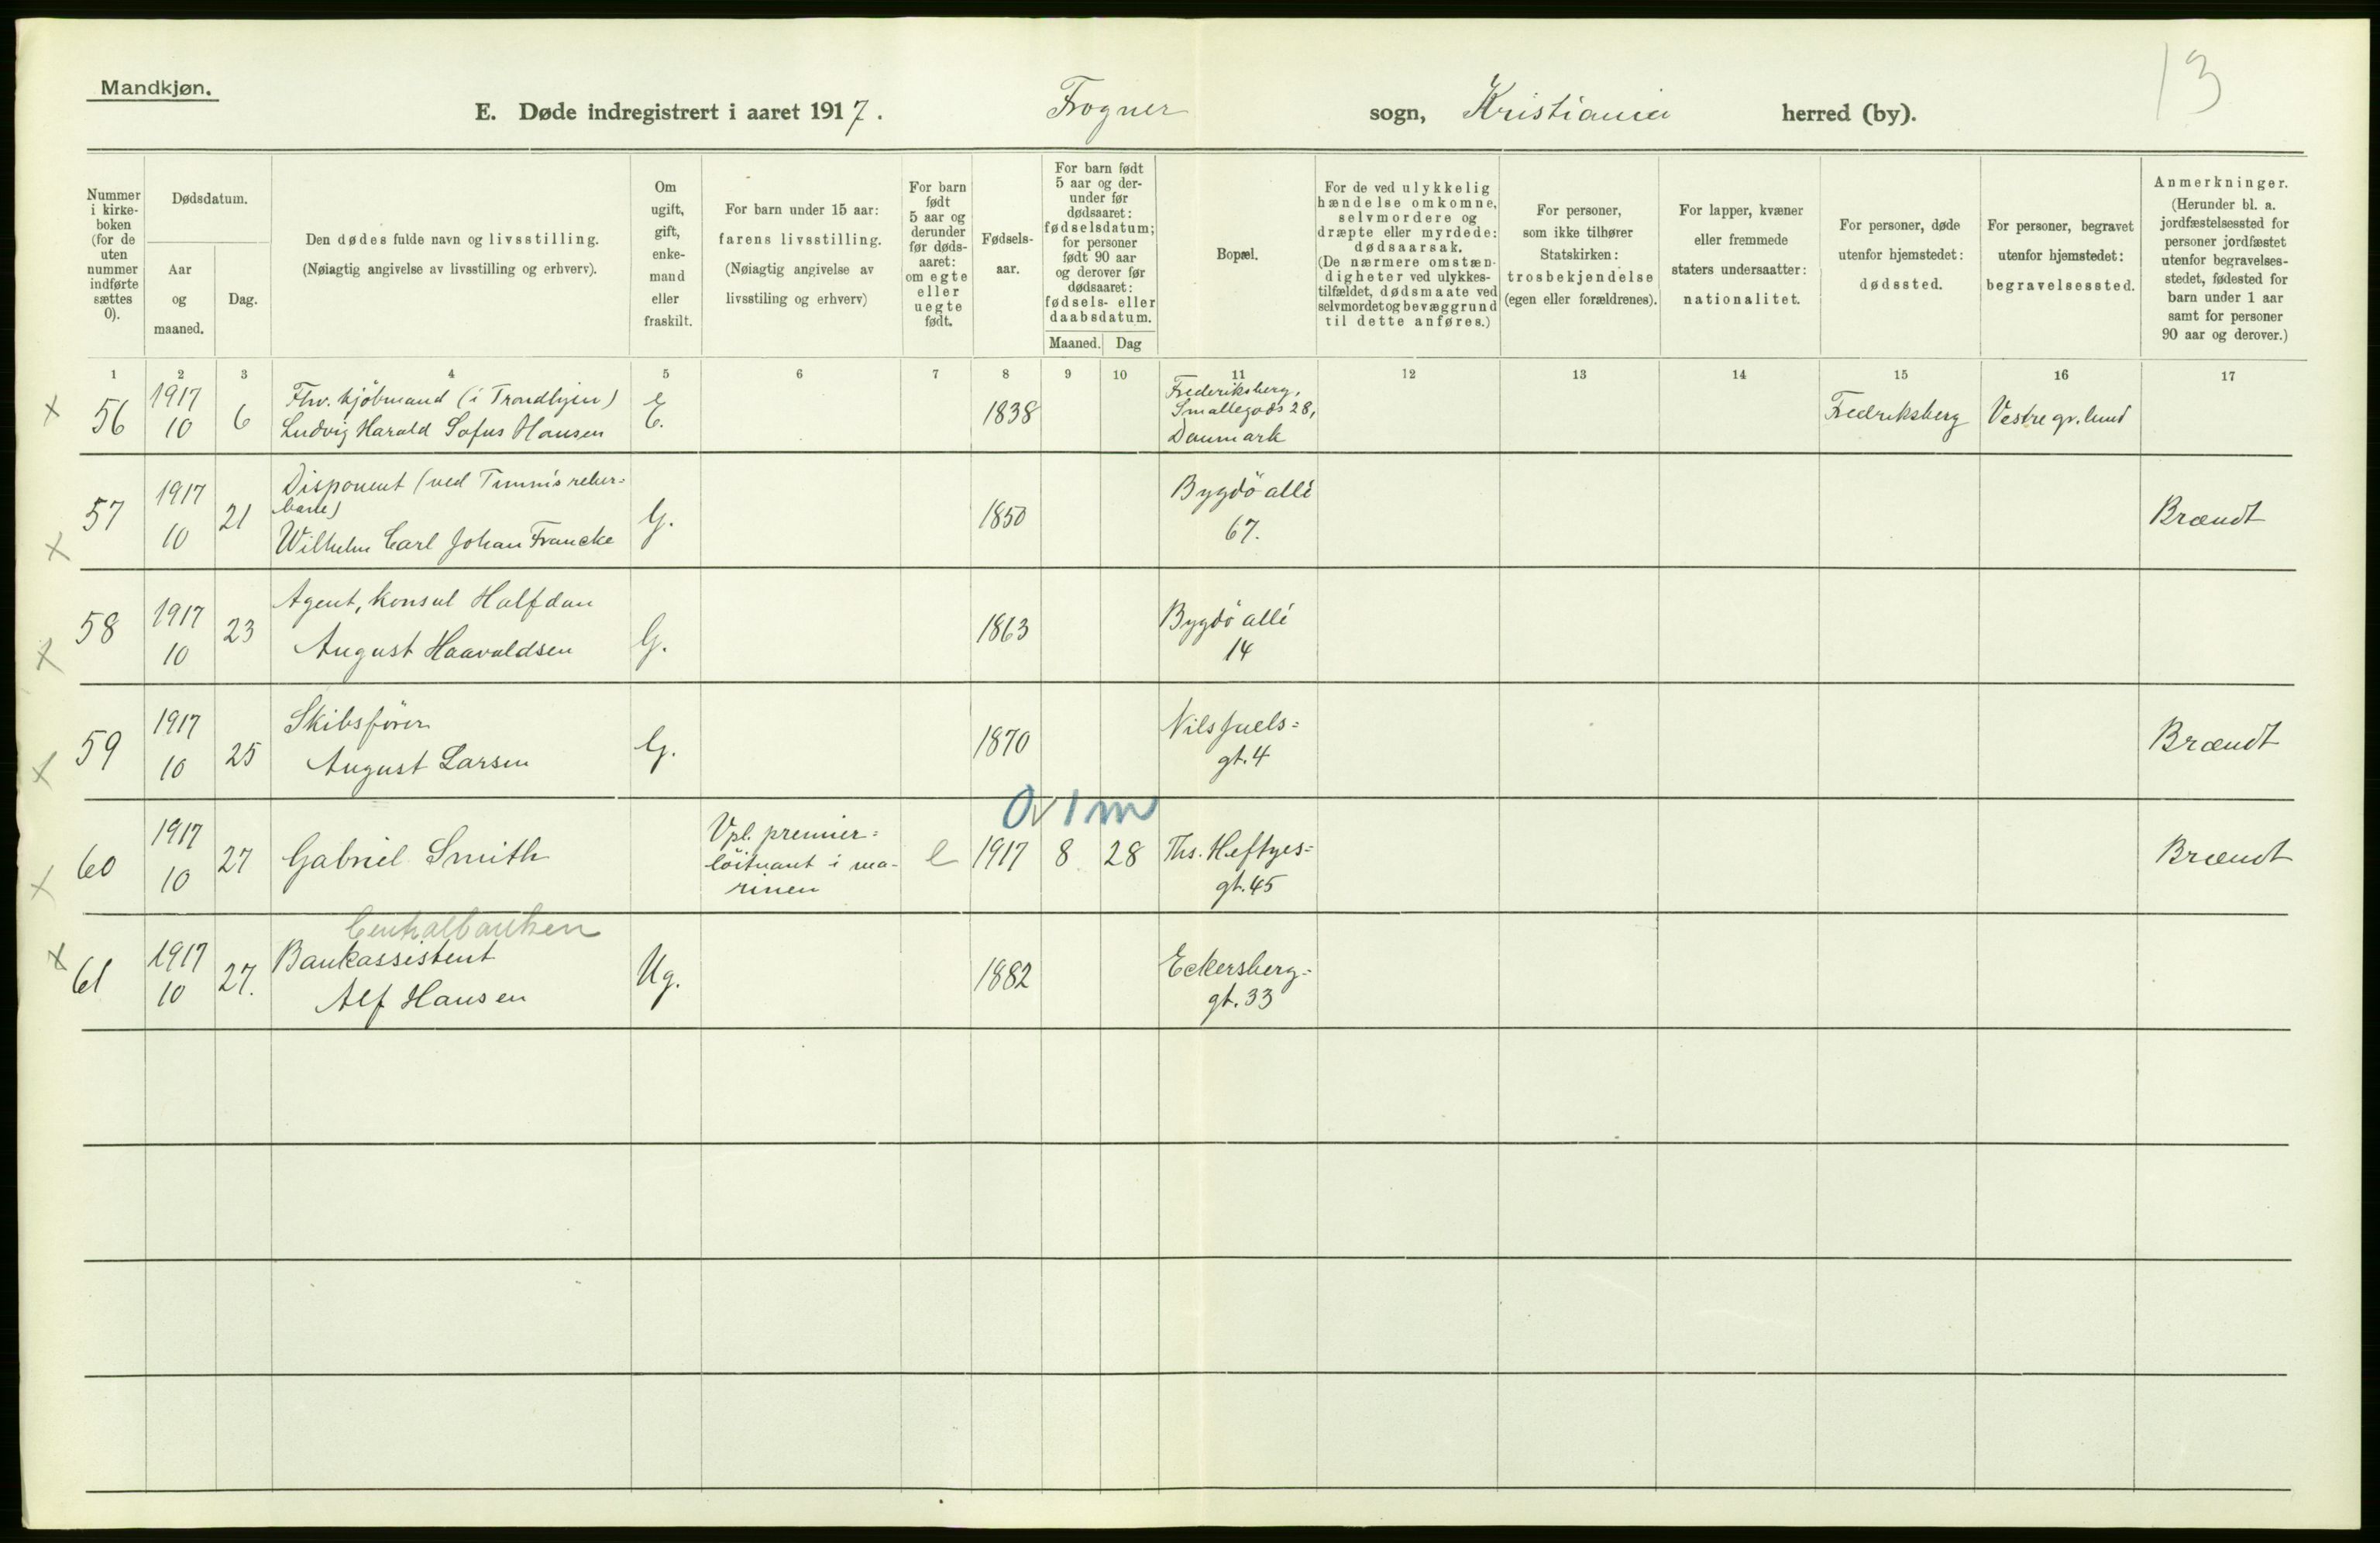 Mandkjøn.
13
E. Døde indregistrert i aaret 1917. Frogner sogn, Kristiania herred (by).
Nummer i kirke-boken (for de uten nummer indførte sættes 0).
Dødsdatum.
Aar og maaned.
Dag.
Den dødes fulde navn og livsstilling.
(Nøiagtig angivelse av livsstilling og erhverv).
Om ugift, gift, enke-mand eller fraskilt.
For barn under 15 aar:
farens livsstilling.
(Nøiagtig angivelse av
livsstiling og erhverv)
For barn født 5 aar og derunder før døds-aaret: om egte eller uegte født.
Fødsels-aar.
For barn født 5 aar og der-under før dødsaaret: fødselsdatum; for personer født 90 aar og derover før dødsaaret: fødsels- eller daabsdatum.
Maaned. Dag
Bopæl.
For de ved ulykkelig hændelse omkomne, selvmordere og dræpte eller myrdede: dødsaarsak. (De nærmere omstæn-digheter ved ulykkes-tilfældet, dødsmaate ved selvmordet og bevæggrund til dette anføres.)
For personer, som ikke tilhører Statskirken: trosbekjendelse (egen eller forældrenes).
For lapper, kvæner eller fremmede staters undersaatter: nationalitet.
For personer, døde utenfor hjemstedet: dødssted.
For personer, begravet utenfor hjemstedet: begravelsessted.
Anmerkninger. (Herunder bl. a. jordfæstelsessted for personer jordfæstet utenfor begravelses-stedet, fødested for barn under 1 aar samt for personer 90 aar og derover.)
1 2 3 4 5 6 7 8 9 10 11 12 13 14 15 16 17
x 56 1917 10 6 Fhv. kjöbmand (i Trondhjem)
Ludvig Harald Sofus Hansen E. 1838 Frederiksberg,
Smallegads 28,
Danmark Fredriksberg Vestre gr. lund
x 57 1917 10 21 Disponent (ved
Wilhelm Carl Johan Francke G. 1850 Bygdö allé
67. Brændt
x 58 1917 10 23 Agent, konsul Halfdan
August Haavaldsen G. 1863 Bygdö allé
14
x 59 1917 10 25 Skibsförer
August Larsen G. 1870 Nils Juels=
gt. 4 Brændt
0v 1 m
x 60 1917 10 27 Gabriel Smith Vpl. premier=
löitnant i ma-
rinen e 1917 8 28 Ths. Heftyes=
gt. 45 Brændt
Centralbanken
x 61 1917 10 27. Bankassistent
Alf Hansen Ug. 1882 Eckersberg=
gt. 33